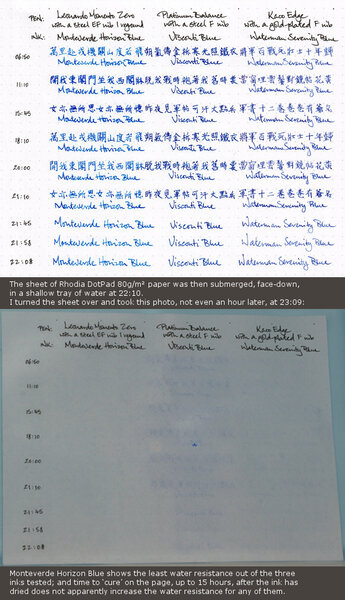 PEN: Leonardo Momento Zero Platinum Balance Kaco Edge
with a steel EF nib with a steel F nib with a gold-plated F nib
INK: Monteverde Horizon Blue Visconti Blue Waterman Serenity Blue
06:50 萬里赴戎機關山度若飛 朔氣傳金柝寒光照鐵衣 將軍百戰死壯士十年歸
Monteverde Horizon Blue Visconti Blue Waterman Serenity Blue
11:10 開我東閣門坐我西閣牀 脫我戰時袍著我舊時裳 當窗理雲鬢對鏡帖花黃
Monteverde Horizon Blue Visconti Blue Waterman Serenity Blue
15:45 女亦無所思女亦無所憶 昨夜見軍帖可汗大點兵 軍書十二卷卷卷有爺名
Monteverde Horizon Blue Visconti Blue Waterman Serenity Blue
18:10 萬里赴戎機關山度若飛 朔氣傳金柝寒光照鐵衣 將軍百戰死壯士十年歸
Monteverde Horizon Blue Visconti Blue Waterman Serenity Blue
20:00 開我東閣門坐我西閣牀 脫我戰時袍著我舊時裳 當窗理雲鬢對鏡帖花黃
Monteverde Horizon Blue Visconti Blue Waterman Serenity Blue
21:10 女亦無所思女亦無所憶 昨夜見軍帖可汗大點兵 軍書十二卷卷卷有爺名
Monteverde Horizon Blue Visconti Blue Waterman Serenity Blue
21:45 Monteverde Horizon Blue Visconti Blue Waterman Serenity Blue
21:58 Monteverde Horizon Blue Visconti Blue Waterman Serenity Blue
22:08 Monteverde Horizon Blue Visconti Blue Waterman Serenity Blue
The sheet of Rhodia DotPad 80g/m² paper was then submerged, face-down,
in a shallow tray of water at 22:10.
I turned the sheet over and took this photo, not even an hour later, at 23:09:
PEN: Leonardo Momento Zero Platinum Balance Kaco Edge
with a steel EF nib with a steel F nib with a gold-plated F nib
INK: Monteverde Horizon Blue Visconti Blue Waterman Serenity Blue
06:50
11:10
15:45
18:10
20:00
21:10
21:45
21:58
22:08
Monteverde Horizon Blue shows the least water resistance out of the three
inks tested; and time to 'cure' on the page, up to 15 hours, after the ink has
dried does not apparently increase the water resistance for any of them.